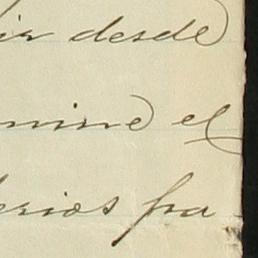 ir desde
mine el
erios fra